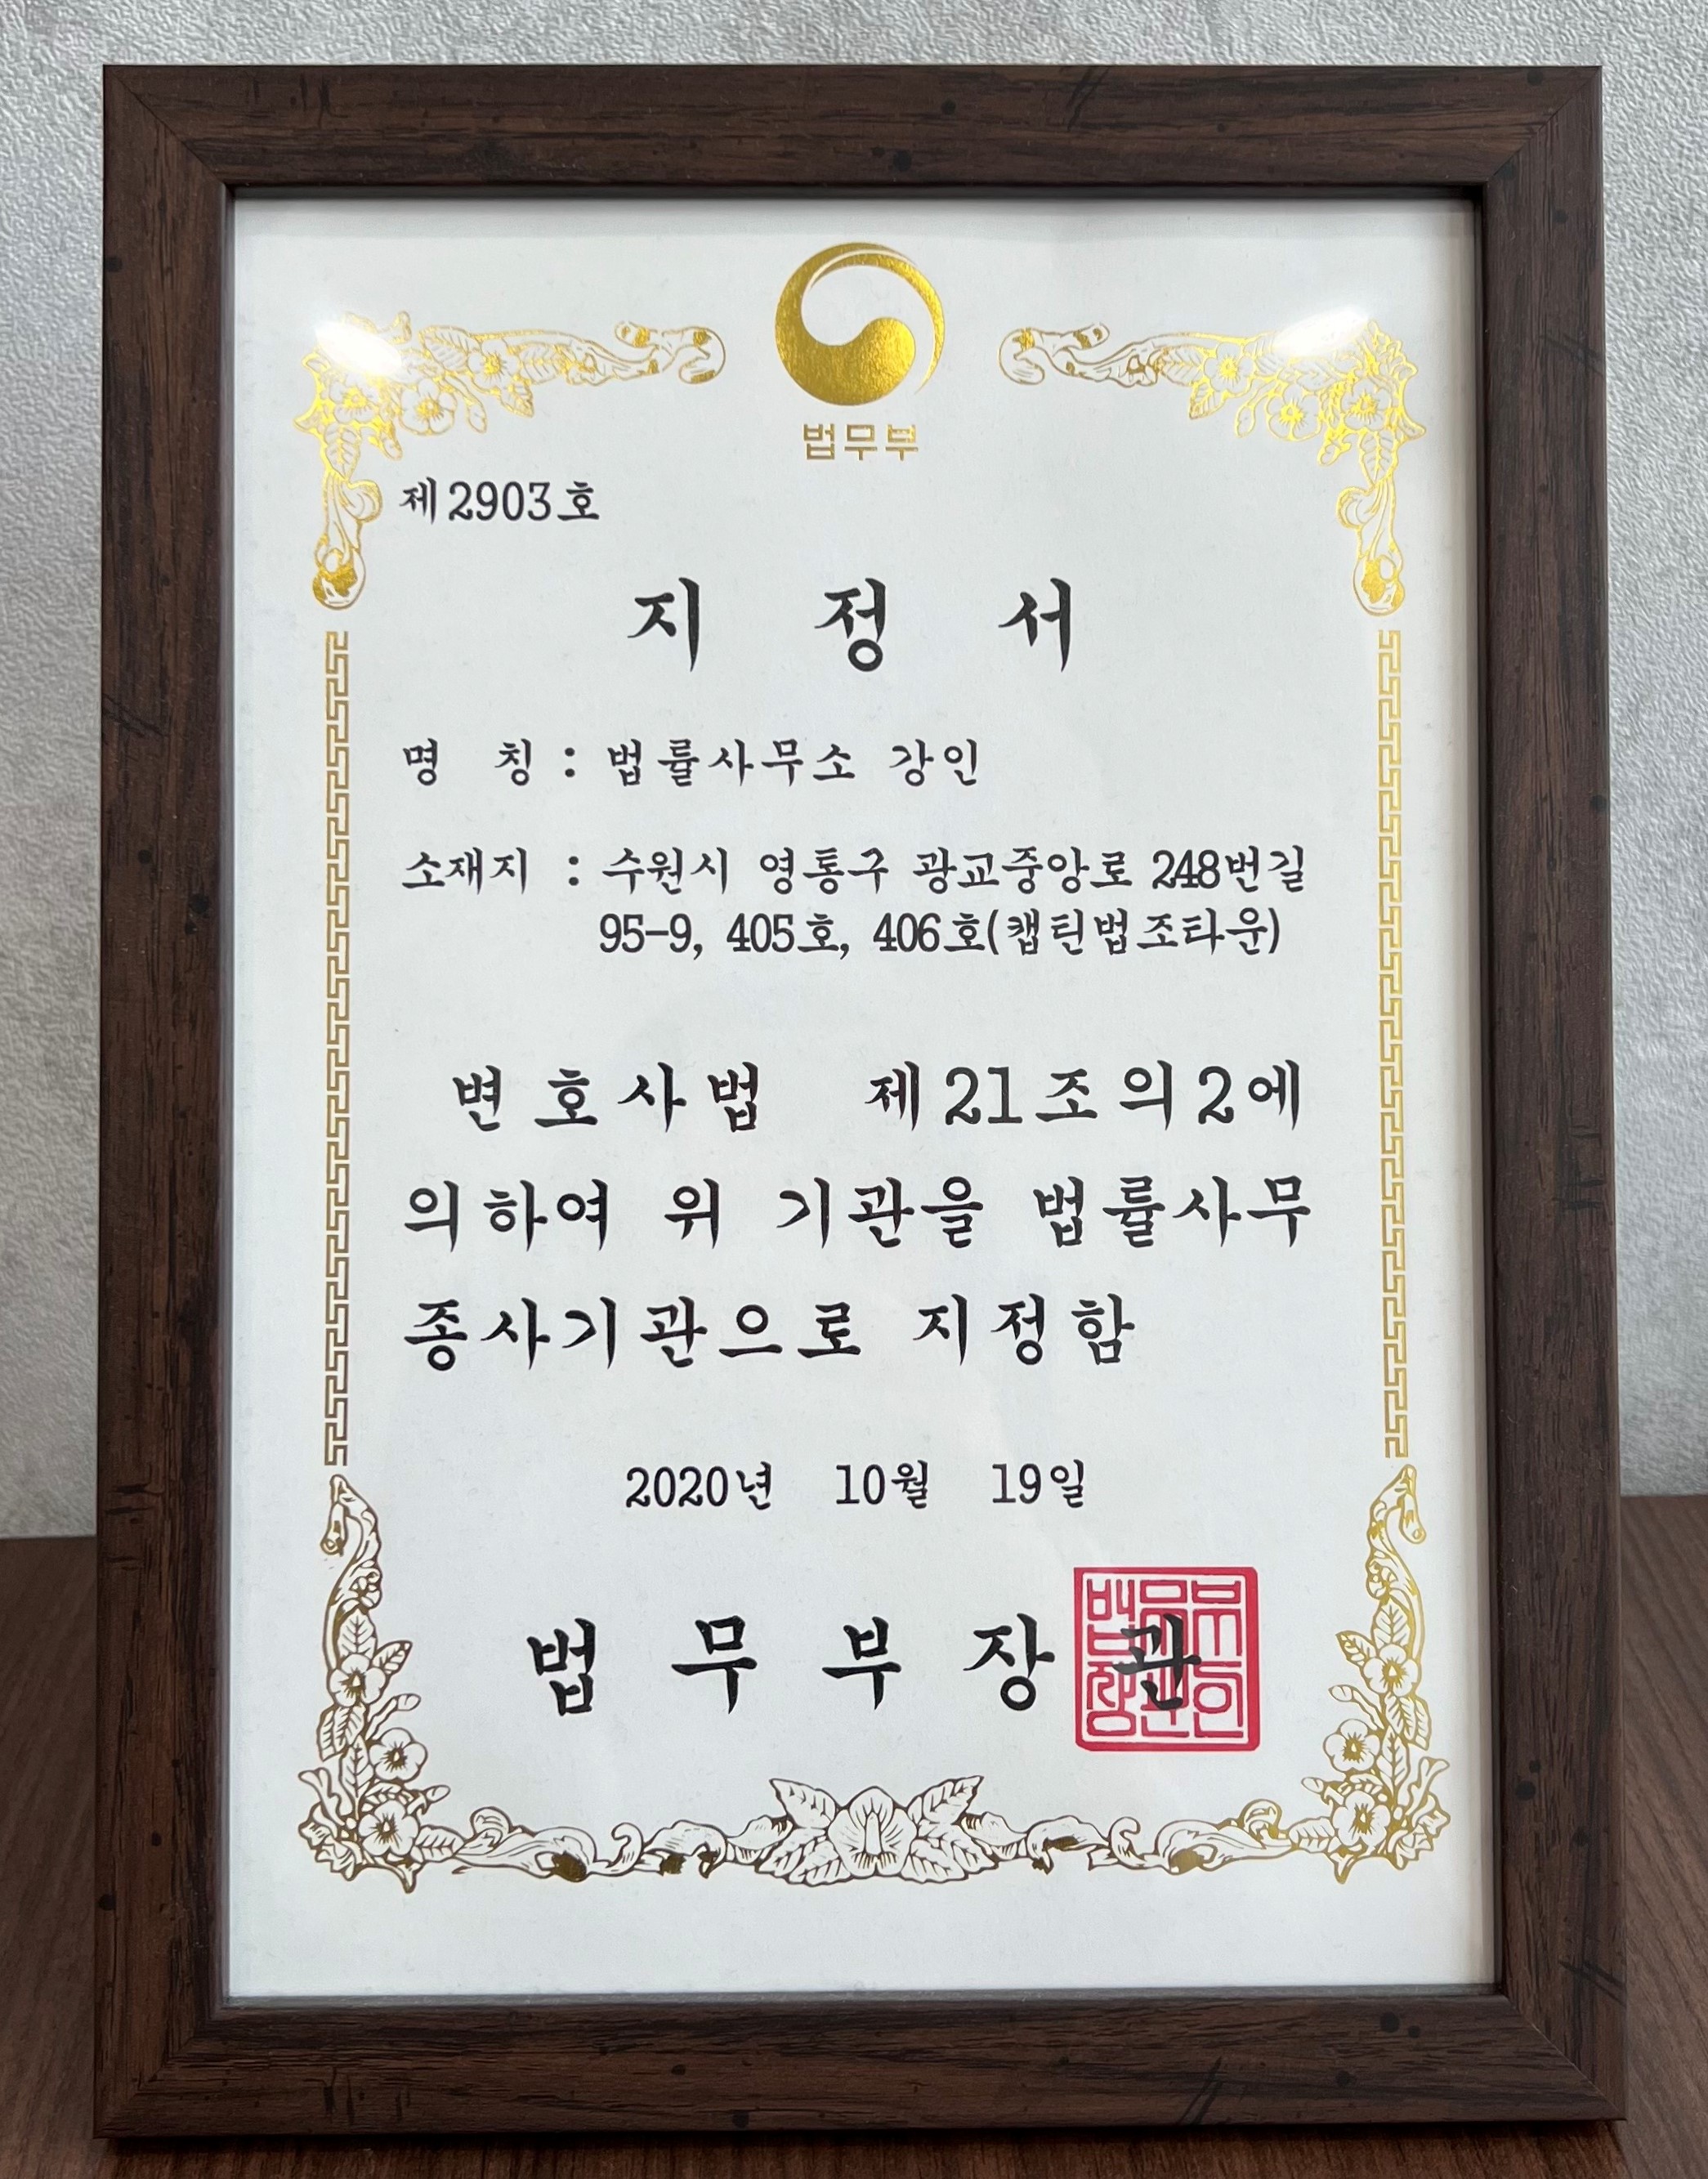 법무부
제2903호
지 정 서
명 칭 : 법률사무소 강인
소재지 : 수원시 영통구 광교중앙로 248번길
95-9, 405호, 406호(캡틴법조타운)
변호사법 제21조의2에
의하여 위 기관을 법률사무
종사기관으로 지정함
2020년 10월 19일
법 무 부 장 관
법무부
장관인